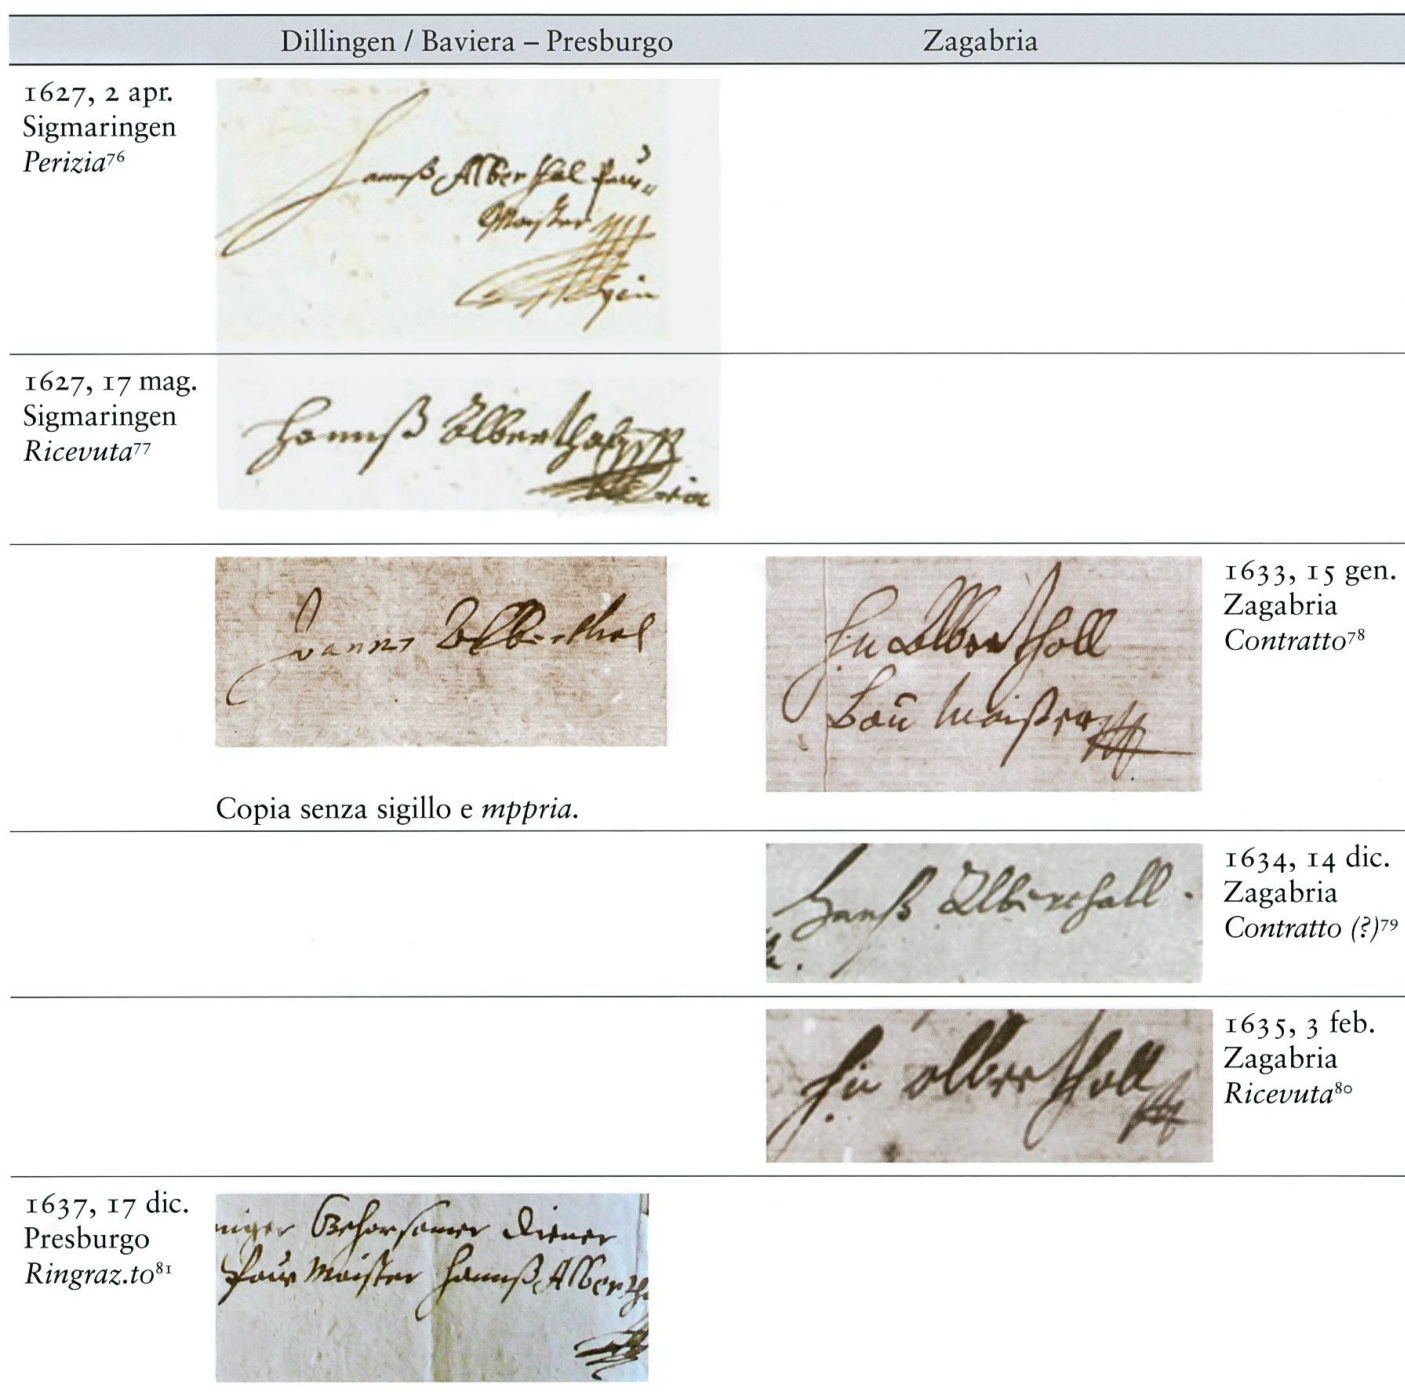 Dillingen / Baviera – Presburgo
Zagabria
1627, 2 apr.
Sigmaringen
Perizia⁷⁶
Hannß Alberthal Paŭ-
Maister
1627, 17 mag.
Sigmaringen
Ricevuta⁷⁷
Hannß Alberthal
Joannes Alberthal
Copia senza sigillo e mppria.
Alberthall
Baŭ Maister
1633, 15 gen.
Zagabria
Contratto⁷⁸
Hanß Alberthall
1634, 14 dic.
Zagabria
Contratto (?)⁷⁹
Alberthall
1635, 3 feb.
Zagabria
Ricevuta⁸⁰
1637, 17 dic.
Presburgo
Ringraz.to⁸¹
niger Gehorsamer Diener
Paŭr Maister Hannß Alberth